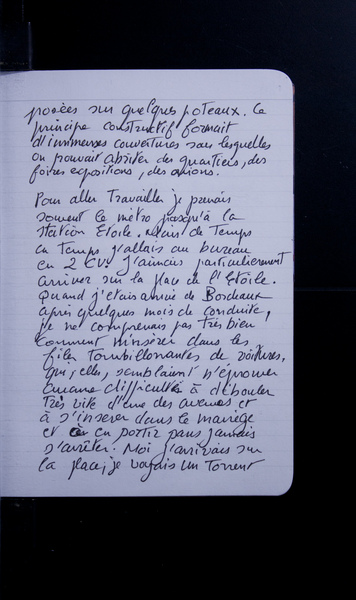 posées sur quelques poteaux. Ce
principe constructif formait
d'immenses couvertures sous lesquelles
on pouvait abriter des quartiers, des
foires expositions, des avions.
Pour aller Travailler je prenais
souvent le métro jusqu'à la
station Etoile. Mais de Temps
en Temps j'allais au bureau
en 2 CV. J'aimais particulièrement
arriver sur la place de l'Etoile.
Quand j'étais arrivé de Bordeaux
après quelques mois de conduite,
je ne comprenais pas très bien
comment m'insérer dans les
files Tourbillonnantes de voitures,
qui, elles, semblaient n'éprouver
aucune difficultés à débouler
Très vite d'une des avenues et
à s'insérer dans le manège
et en sortir sans jamais
s'arrêter. Moi j'arrivais sur
la place, je voyais un Torrent